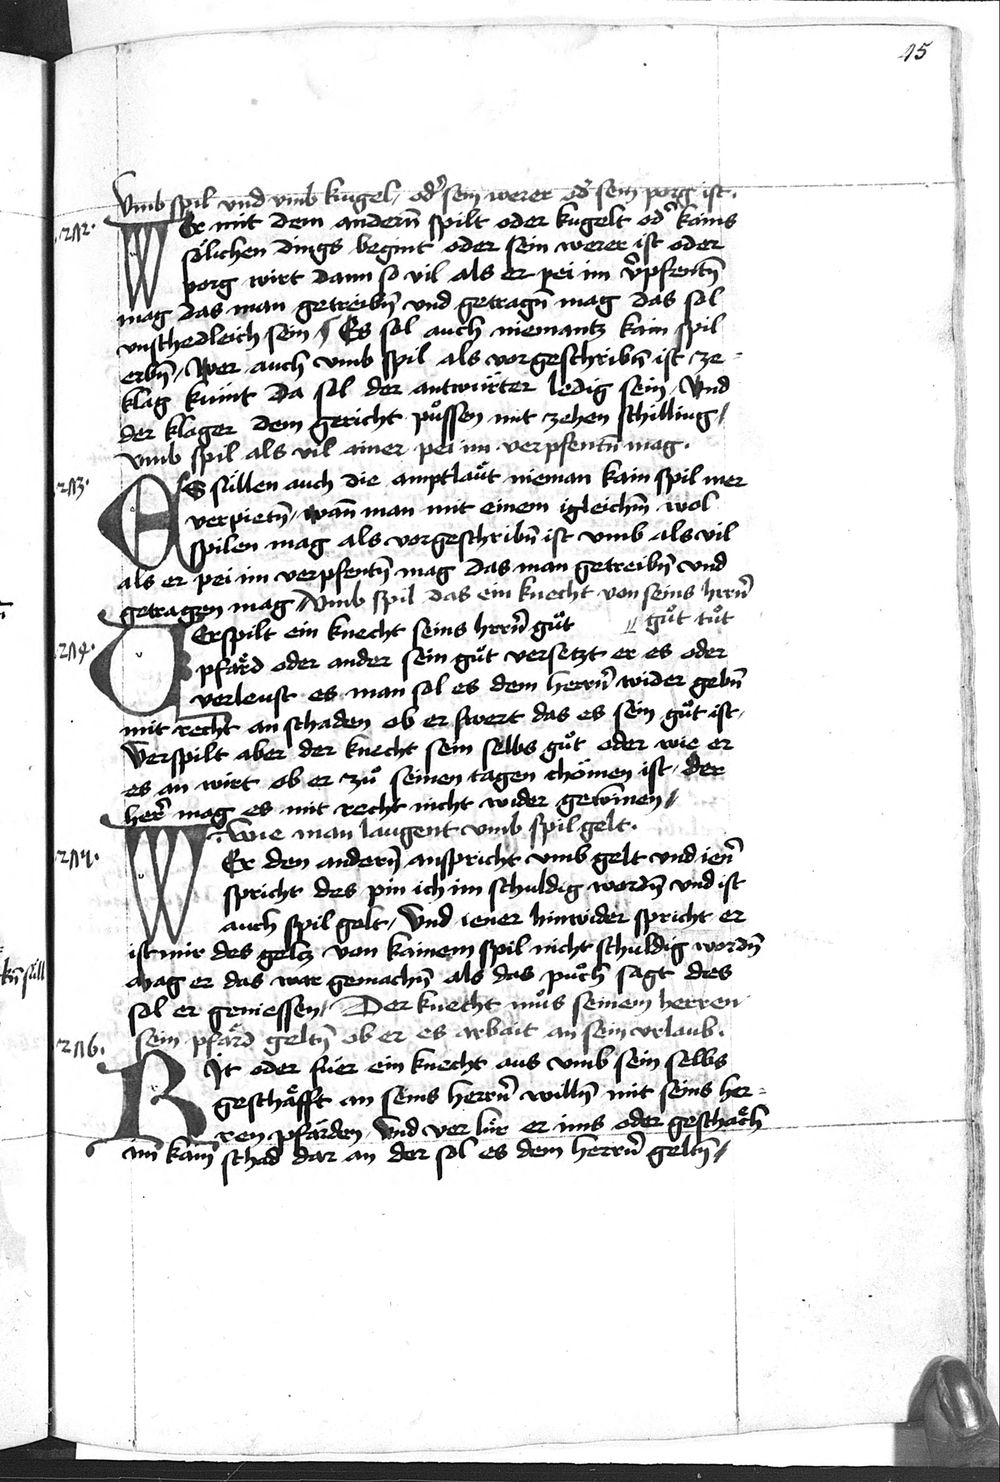 45
Vmb spil vnd vmb kugel / od̉ sein werer od̉ sein porg ist.
·272· WEr mit dem andern̄ spilt oder kugelt od̉ kains
sölichen dings begint oder sein werer ist oder
porg wirt dann so vil als er pei im v̉pfentn̄
mag das man getreibn̄ vnd getragn̄ mag das sol
vnschedleich sein / Es sol auch niemantz kain spil
erbn̄ / Wer auch vmb spil als vorgeschribn̄ ist ze-
klag kümt Da sol der antwürter ledig sein / Vnd
der klager dem gericht pǔssen mit zehen schilling /
Vmb spil als vil ainer pei im verpfentn̄ mag.
·273· ES süllen auch die amptlaüt nieman kain spil mer
verpietn̄ / wan̄ man mit einem igleichm̄ wol
spilen mag als vorgeschribn̄ ist vmb als vil
als er pei im verpfentn̄ mag das man getreibn̄ vnd
getragen mag / Vmb spil das ein knecht von seins hrrn̄
gůt tůt
·274· VErspilt ein knecht seins hrrn̄ gůt
pfärd oder ander sein gůt versetzt er es oder
verleust es man sol es dem herrn̄ wider gebn̄
mit recht an schaden ob er swert das es sein gůt ist /
Verspilt aber der knecht sein selbs gůt oder wie er
es an wirt ob er zů seinen tagen chömen ist / der
her̄ mag es mit recht nicht wider gewinnen /
Wie man laugent vmb spil gelt.
·275· WEr den andern̄ anspricht vmb gelt vnd ien̄
spricht des pin ich im schuldig wordn̄ vnd ist
auch spil gelt / Vnd iener hinwider spricht er
ist mir des geltz von kainem spil nicht schuldig wordn̄
mag er das war gemachn̄ als das půch sagt des
sol er geniessen / Der knecht můs seinem herren
sein pfärd geltn̄ ob er es arbait an sein vrlaub.
·276· RIt oder füer ein knecht aus vmb sein selbs
geschäfft an seins herrn̄ willn̄ mit seins her-
ren pfärden / Vnd verlür er ims oder geschäch
im̄ kain̄ schad dar an der sol es dem herrn̄ geltn̄ /